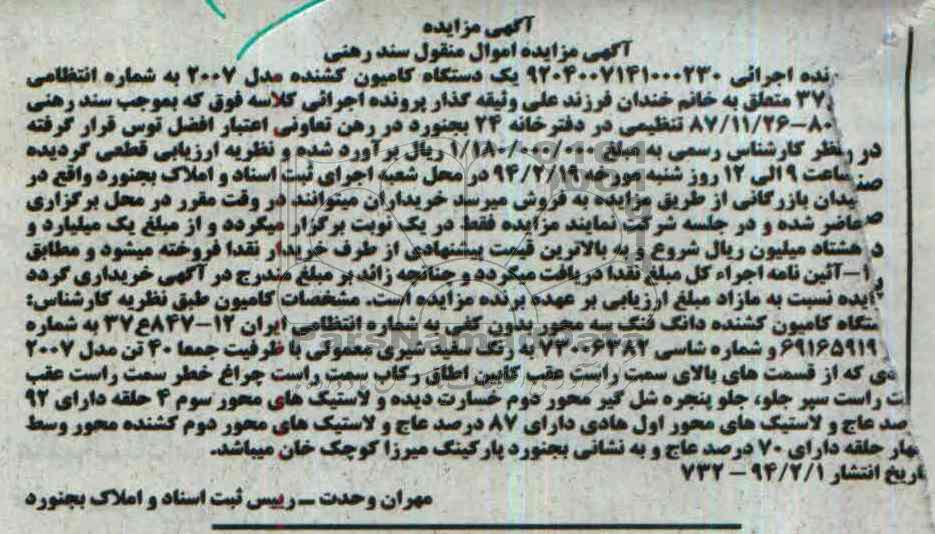 آگهی مزایده
آگهی مزایده اموال منقول سند رهنی
نده اجرائی ۹۲۰۴۰۰۷۱۴۱۰۰۰۲۳۰ یک دستگاه کامیون کشنده مدل ۲۰۰۷ به شماره انتظامی
۳۷ متعلق به خانم خندان فرزند علی وثیقه گذار پرونده اجرائی کلاسه فوق که بموجب سند رهنی
۸۰-۸۷/۱۱/۲۶ تنظیمی در دفترخانه ۲۴ بجنورد در رهن تعاونی اعتبار افضل توس قرار گرفته
در نظر کارشناس رسمی به مبلغ ۱/۱۸۰/۰۰۰/۰۰۰ ریال برآورد شده و نظریه ارزیابی قطعی گردیده
ساعت ۹ الی ۱۲ روز شنبه مورخه ۹۴/۲/۱۹ در محل شعبه اجرای ثبت اسناد و املاک بجنورد واقع در
یدان بازرگانی از طریق مزایده به فروش میرسد خریداران میتوانند در وقت مقرر در محل برگزاری
حاضر شده و در جلسه شرکت نمایند مزایده فقط در یک نوبت برگزار میگردد و از مبلغ یک میلیارد و
هشتاد میلیون ریال شروع و به بالاترین قیمت پیشنهادی از طرف خریدار نقدا فروخته میشود و مطابق
۱-آئین نامه اجراء کل مبلغ نقدا دریافت میگردد و چنانچه زائد بر مبلغ مندرج در آگهی خریداری گردد
ایده نسبت به مازاد مبلغ ارزیابی بر عهده برنده مزایده است. مشخصات کامیون طبق نظریه کارشناس:
ستگاه کامیون کشنده دانگ فنگ سه محور بدون کفی به شماره انتظامی ایران ۱۲-۸۴۷ع۳۷ به شماره
۶۹۱۶۵۹۱۹ و شماره شاسی ۷۳۰۰۶۳۸۲ به رنگ سفید شیری معمولی با ظرفیت جمعا ۴۰ تن مدل ۲۰۰۷
دی که از قسمت های بالای سمت راست عقب کابین اطاق رکاب سمت راست چراغ خطر سمت راست عقب
ت راست سپر جلو، جلو پنجره شل گیر محور دوم خسارت دیده و لاستیک های محور سوم ۴ حلقه دارای ۹۲
صد عاج و لاستیک های محور اول هادی دارای ۸۷ درصد عاج و لاستیک های محور دوم کشنده محور وسط
هار حلقه دارای ۷۰ درصد عاج و به نشانی بجنورد پارکینگ میرزا کوچک خان میباشد.
اریخ انتشار ۹۴/۲/۱ - ۷۳۲
مهران وحدت - رییس ثبت اسناد و املاک بجنورد